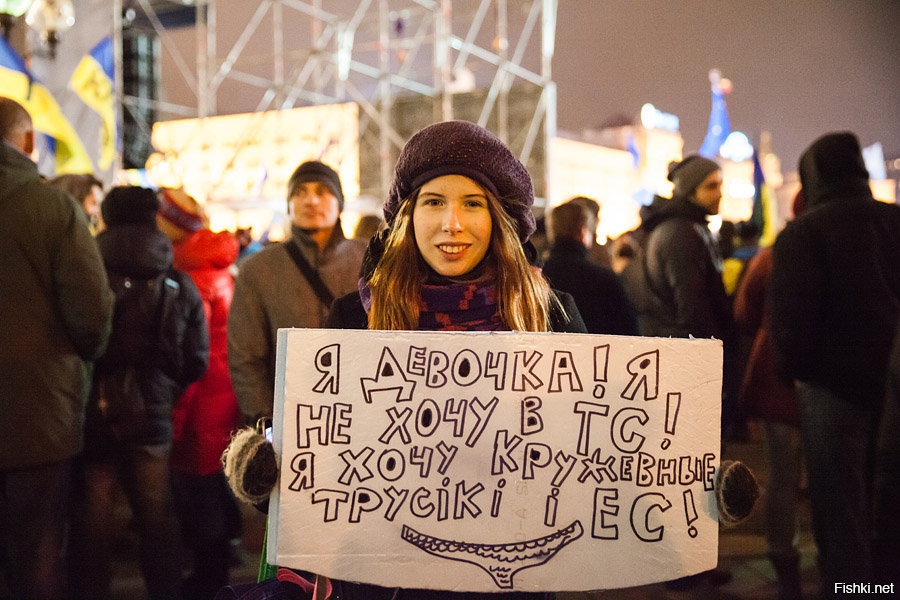 Я ДЕВОЧКА! Я
НЕ ХОЧУ В ТС!
Я ХОЧУ КРУЖЕВНЫЕ
ТРУСІКІ І ЕС!
Fishki.net